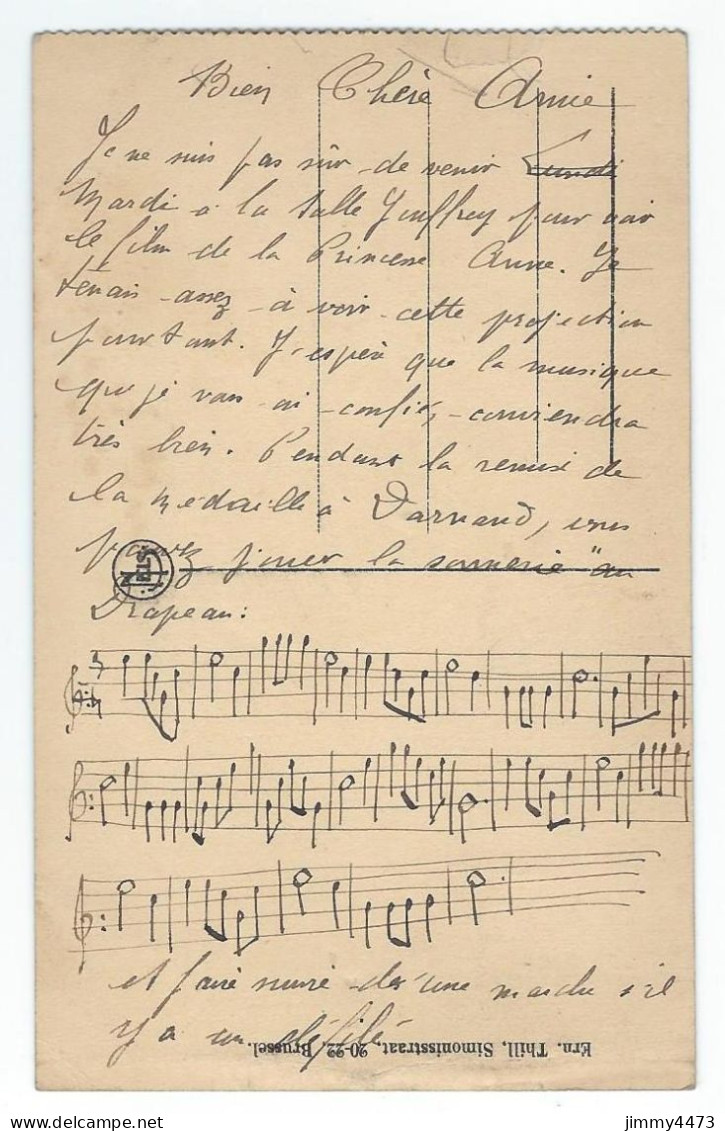 Bien Chère Amie
Je ne suis pas sûr de venir Lundi
Mardi à la salle Jouffroy pour voir
le film de la Princesse Anne. Je
tenais assez à voir cette projection
pourtant. J'espère que la musique
que je vous ai confiée, conviendra
très bien. Pendant la remise de
la médaille à Darnand, vous
pouvez jouer la sonnerie "au
Drapeau:
et faire suivre d'une marche s'il
y a un défilé
Ern. Thill, Simonisstraat, 20-22, Brussel.
jimmy4473